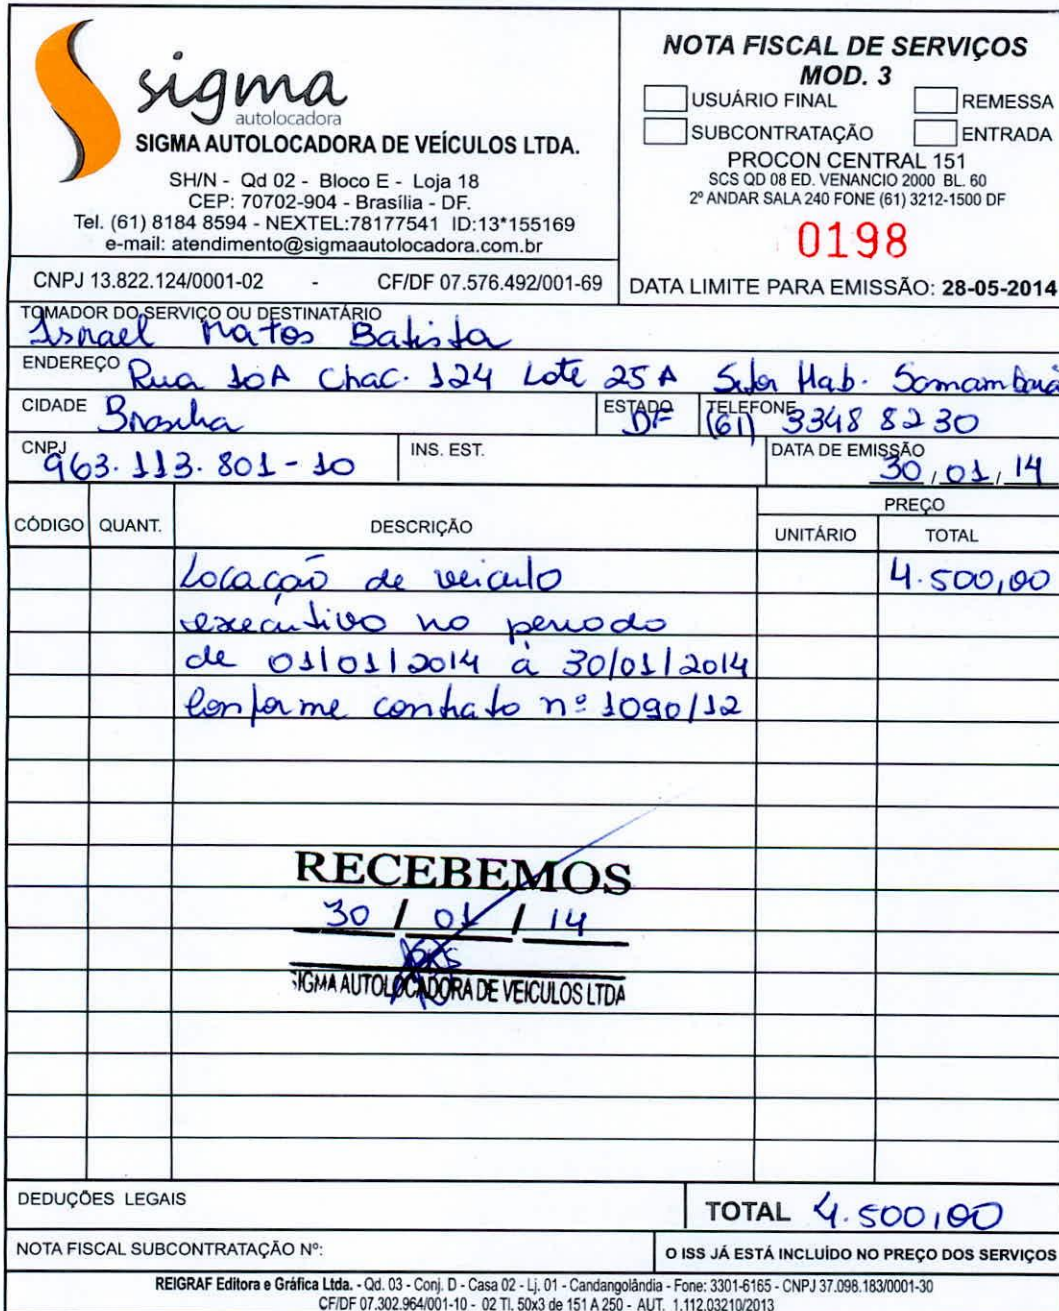 sigma
autolocadora
SIGMA AUTOLOCADORA DE VEÍCULOS LTDA.
SH/N - Qd 02 - Bloco E - Loja 18
CEP: 70702-904 - Brasília - DF.
Tel. (61) 8184 8594 - NEXTEL:78177541 ID:13*155169
e-mail: atendimento@sigmaautolocadora.com.br
CNPJ 13.822.124/0001-02 - CF/DF 07.576.492/001-69
NOTA FISCAL DE SERVIÇOS
MOD. 3
USUÁRIO FINAL REMESSA
SUBCONTRATAÇÃO ENTRADA
PROCON CENTRAL 151
SCS QD 08 ED. VENANCIO 2000 BL. 60
2º ANDAR SALA 240 FONE (61) 3212-1500 DF
0198
DATA LIMITE PARA EMISSÃO: 28-05-2014
TOMADOR DO SERVIÇO OU DESTINATÁRIO
Israel Matos Batista
ENDEREÇO Rua 10A Chac. 124 Lote 25A Setor Hab. Samambaia
CIDADE Brasilia ESTADO DF TELEFONE (61) 3348 8230
CNPJ 963.113.801-10 INS. EST. DATA DE EMISSÃO 30/01/14
CÓDIGO QUANT. DESCRIÇÃO PREÇO
UNITÁRIO TOTAL
Locação de veiculo 4.500,00
executivo no periodo
de 01/01/2014 à 30/01/2014
Conforme contrato nº 1090/12
RECEBEMOS
30 / 01 / 14
SIGMA AUTOLOCADORA DE VEICULOS LTDA
DEDUÇÕES LEGAIS TOTAL 4.500,00
NOTA FISCAL SUBCONTRATAÇÃO Nº: O ISS JÁ ESTÁ INCLUÍDO NO PREÇO DOS SERVIÇOS
REIGRAF Editora e Gráfica Ltda. - Qd. 03 - Conj. D - Casa 02 - Lj. 01 - Candangolândia - Fone: 3301-6165 - CNPJ 37.098.183/0001-30
CF/DF 07.302.964/001-10 - 02 Tl. 50x3 de 151 A 250 - AUT. 1.112.03210/2013